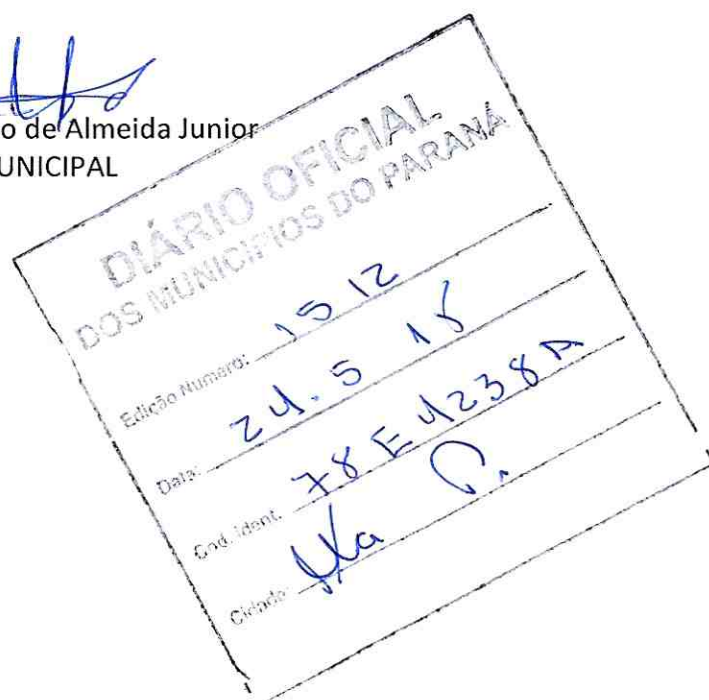 o de Almeida Junior
UNICIPAL
DIÁRIO OFICIAL
DOS MUNICÍPIOS DO PARANÁ
Edição Numero: 1512
Data: 24.5 18
Cod. ident. 78E4238A
Cidade: